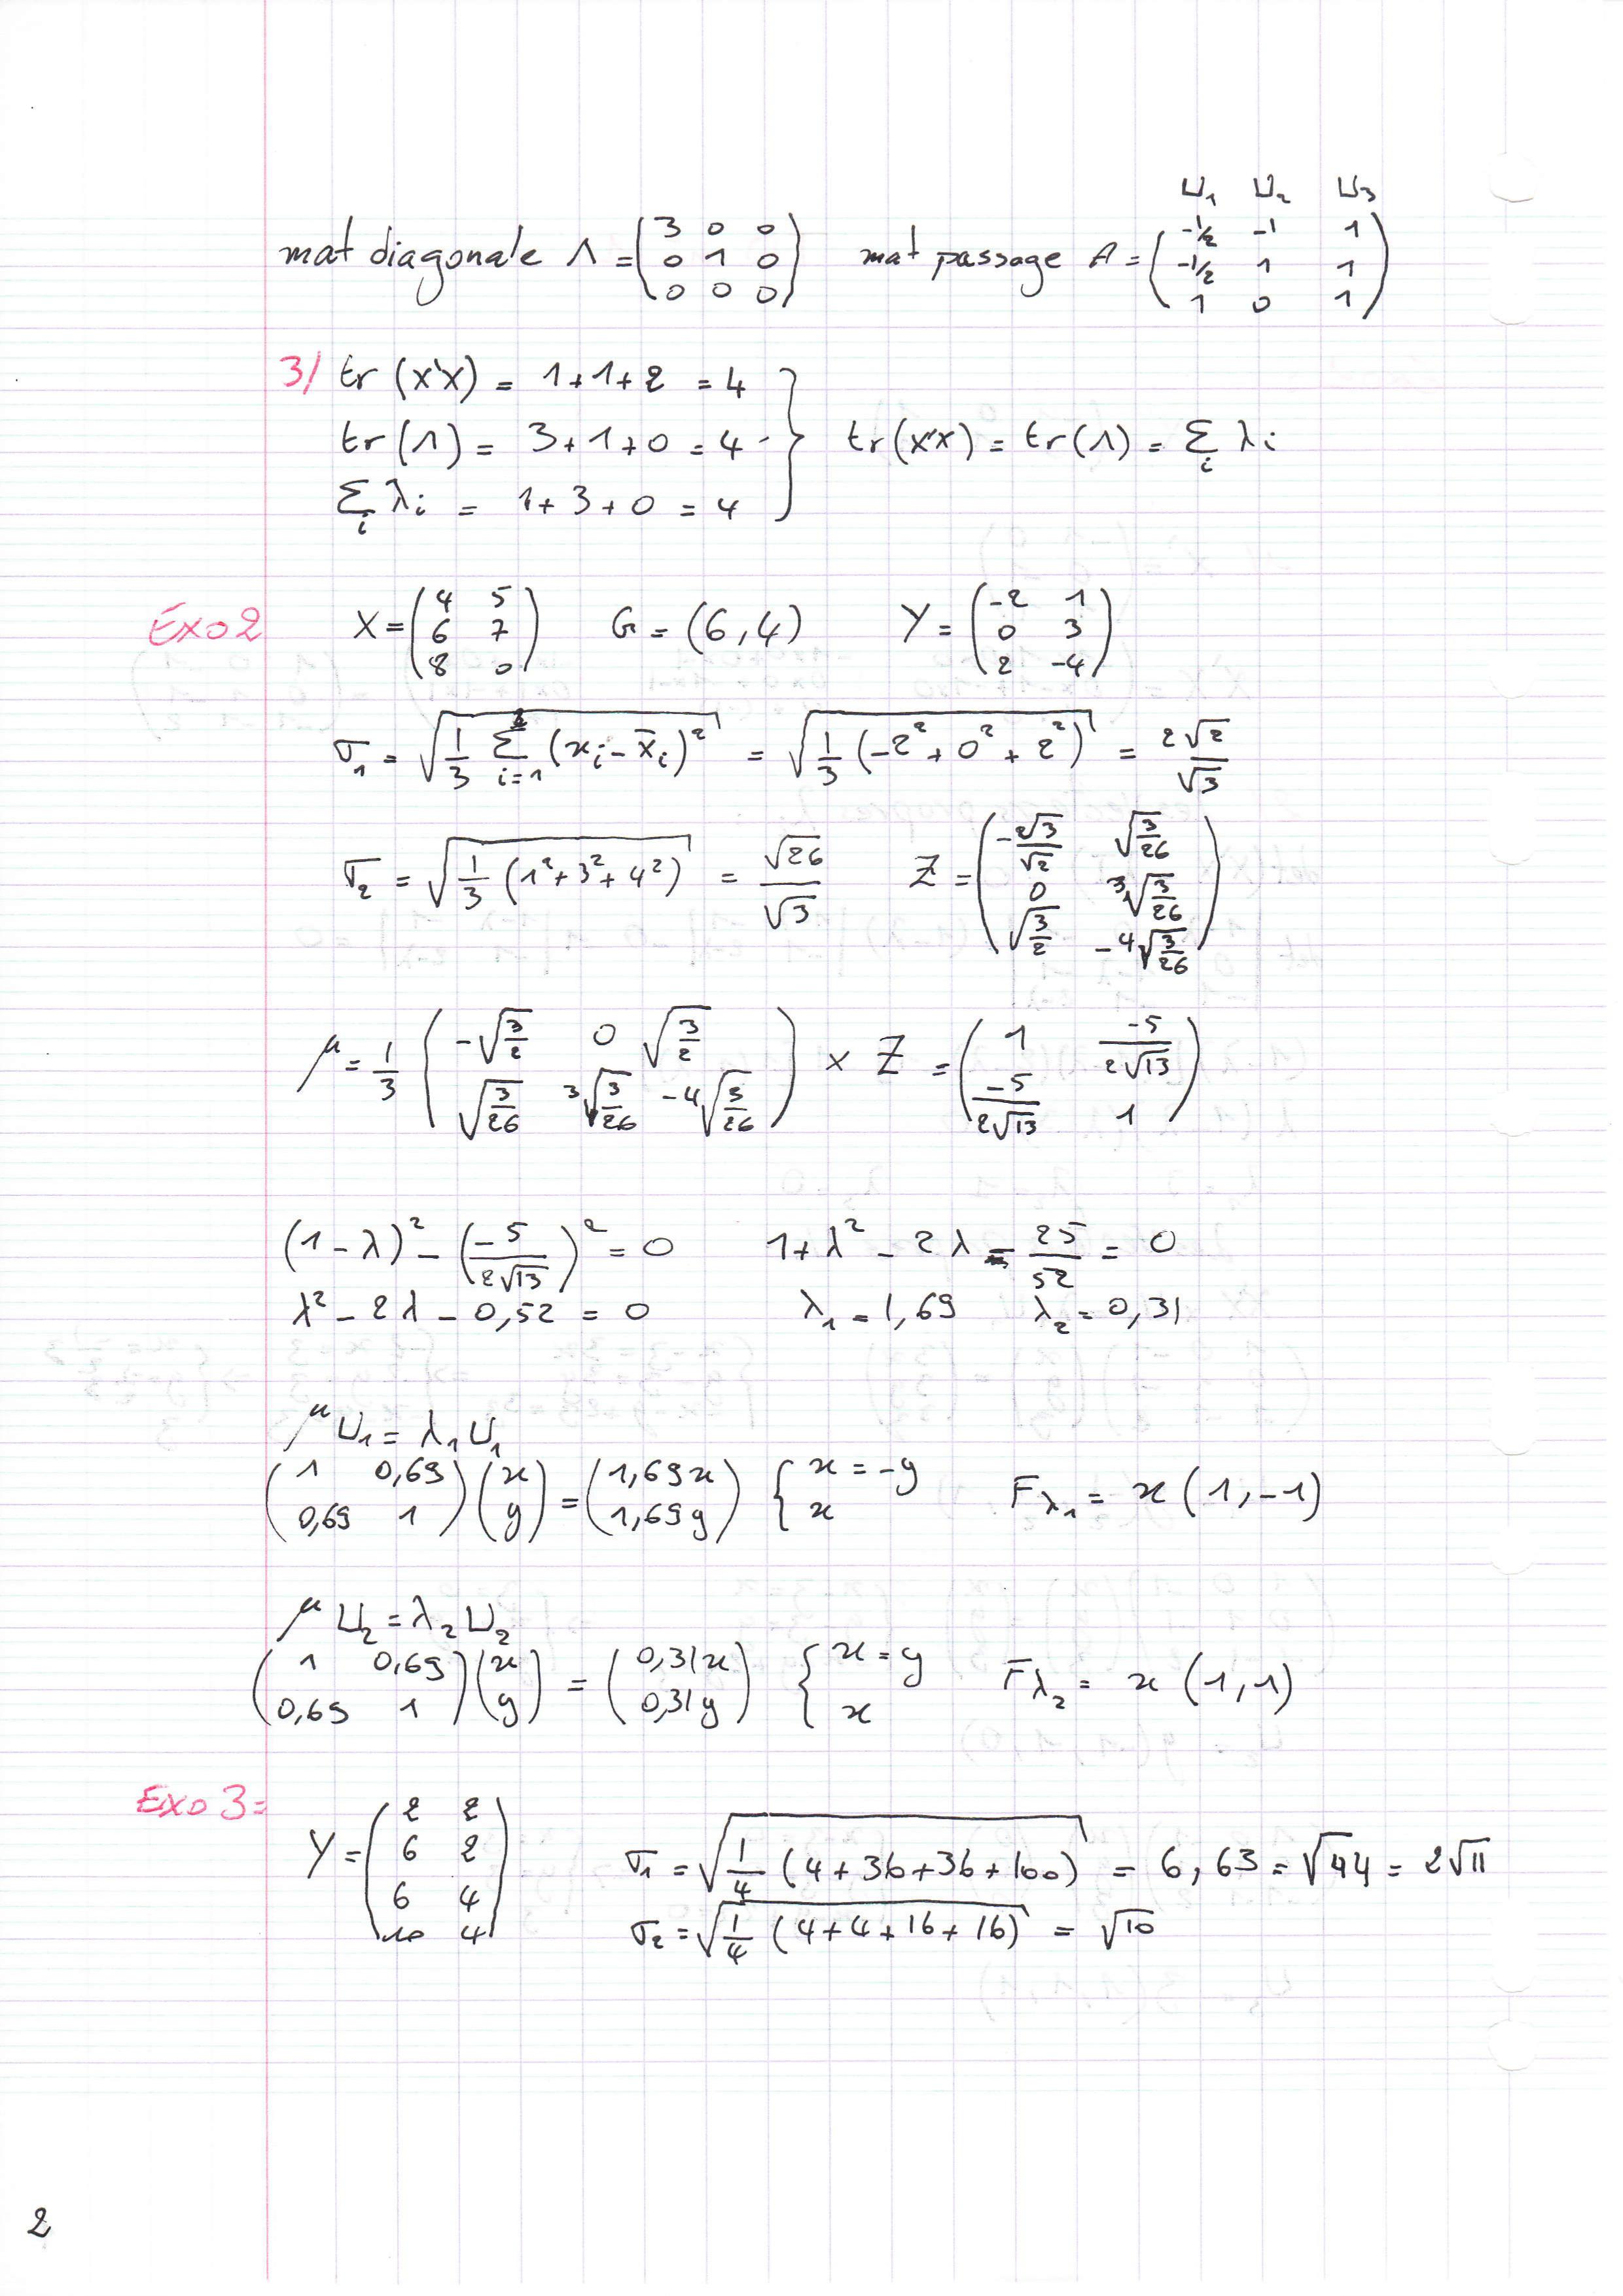 U₁ U₂ U₃
mat diagonale Λ = (3 0 0 ; 0 1 0 ; 0 0 0) mat passage A = (-1/2 -1 1 ; -1/2 1 1 ; 1 0 1)
3/ tr (X'X) = 1+1+2 = 4
tr (Λ) = 3+1+0 = 4 } tr (X'X) = tr (Λ) = Σᵢ λi
Σᵢ λi = 1+3+0 = 4
Exo2 X = (4 5 ; 6 7 ; 8 0) G = (6, 4) Y = (-2 1 ; 0 3 ; 2 -4)
σ₁ = √(1/3 Σ i=1 (xi - x̄i)²) = √(1/3 (-2² + 0² + 2²)) = 2√2/√3
σ₂ = √(1/3 (1²+3²+4²)) = √26/√3 Z = (-2√3/√2 √(3/26) ; 0 3√(3/26) ; √(3/2) -4√(3/26))
μ = 1/3 (-√(3/2) 0 √(3/2) ; √(3/26) 3√(3/26) -4√(3/26)) × Z = (1 -5/2√13 ; -5/2√13 1)
(1-λ)² - (-5/2√13)² = 0 1+λ² - 2λ - 25/52 = 0
λ² - 2λ - 0,52 = 0 λ₁ = 1,69 λ₂ = 0,31
μ U₁ = λ₁ U₁
(1 0,69 ; 0,69 1) (x ; y) = (1,69x ; 1,69y) { x = -y ; x Fλ₁ = x (1, -1)
μ U₂ = λ₂ U₂
(1 0,69 ; 0,69 1) (x ; y) = (0,31x ; 0,31y) { x = y ; x Fλ₂ = x (1, 1)
Exo 3 =
Y = (2 2 ; 6 2 ; 6 4 ; 10 4) σ₁ = √(1/4 (4+36+36+100)) = 6,63 = √44 = 2√11
σ₂ = √(1/4 (4+4+16+16)) = √10
2